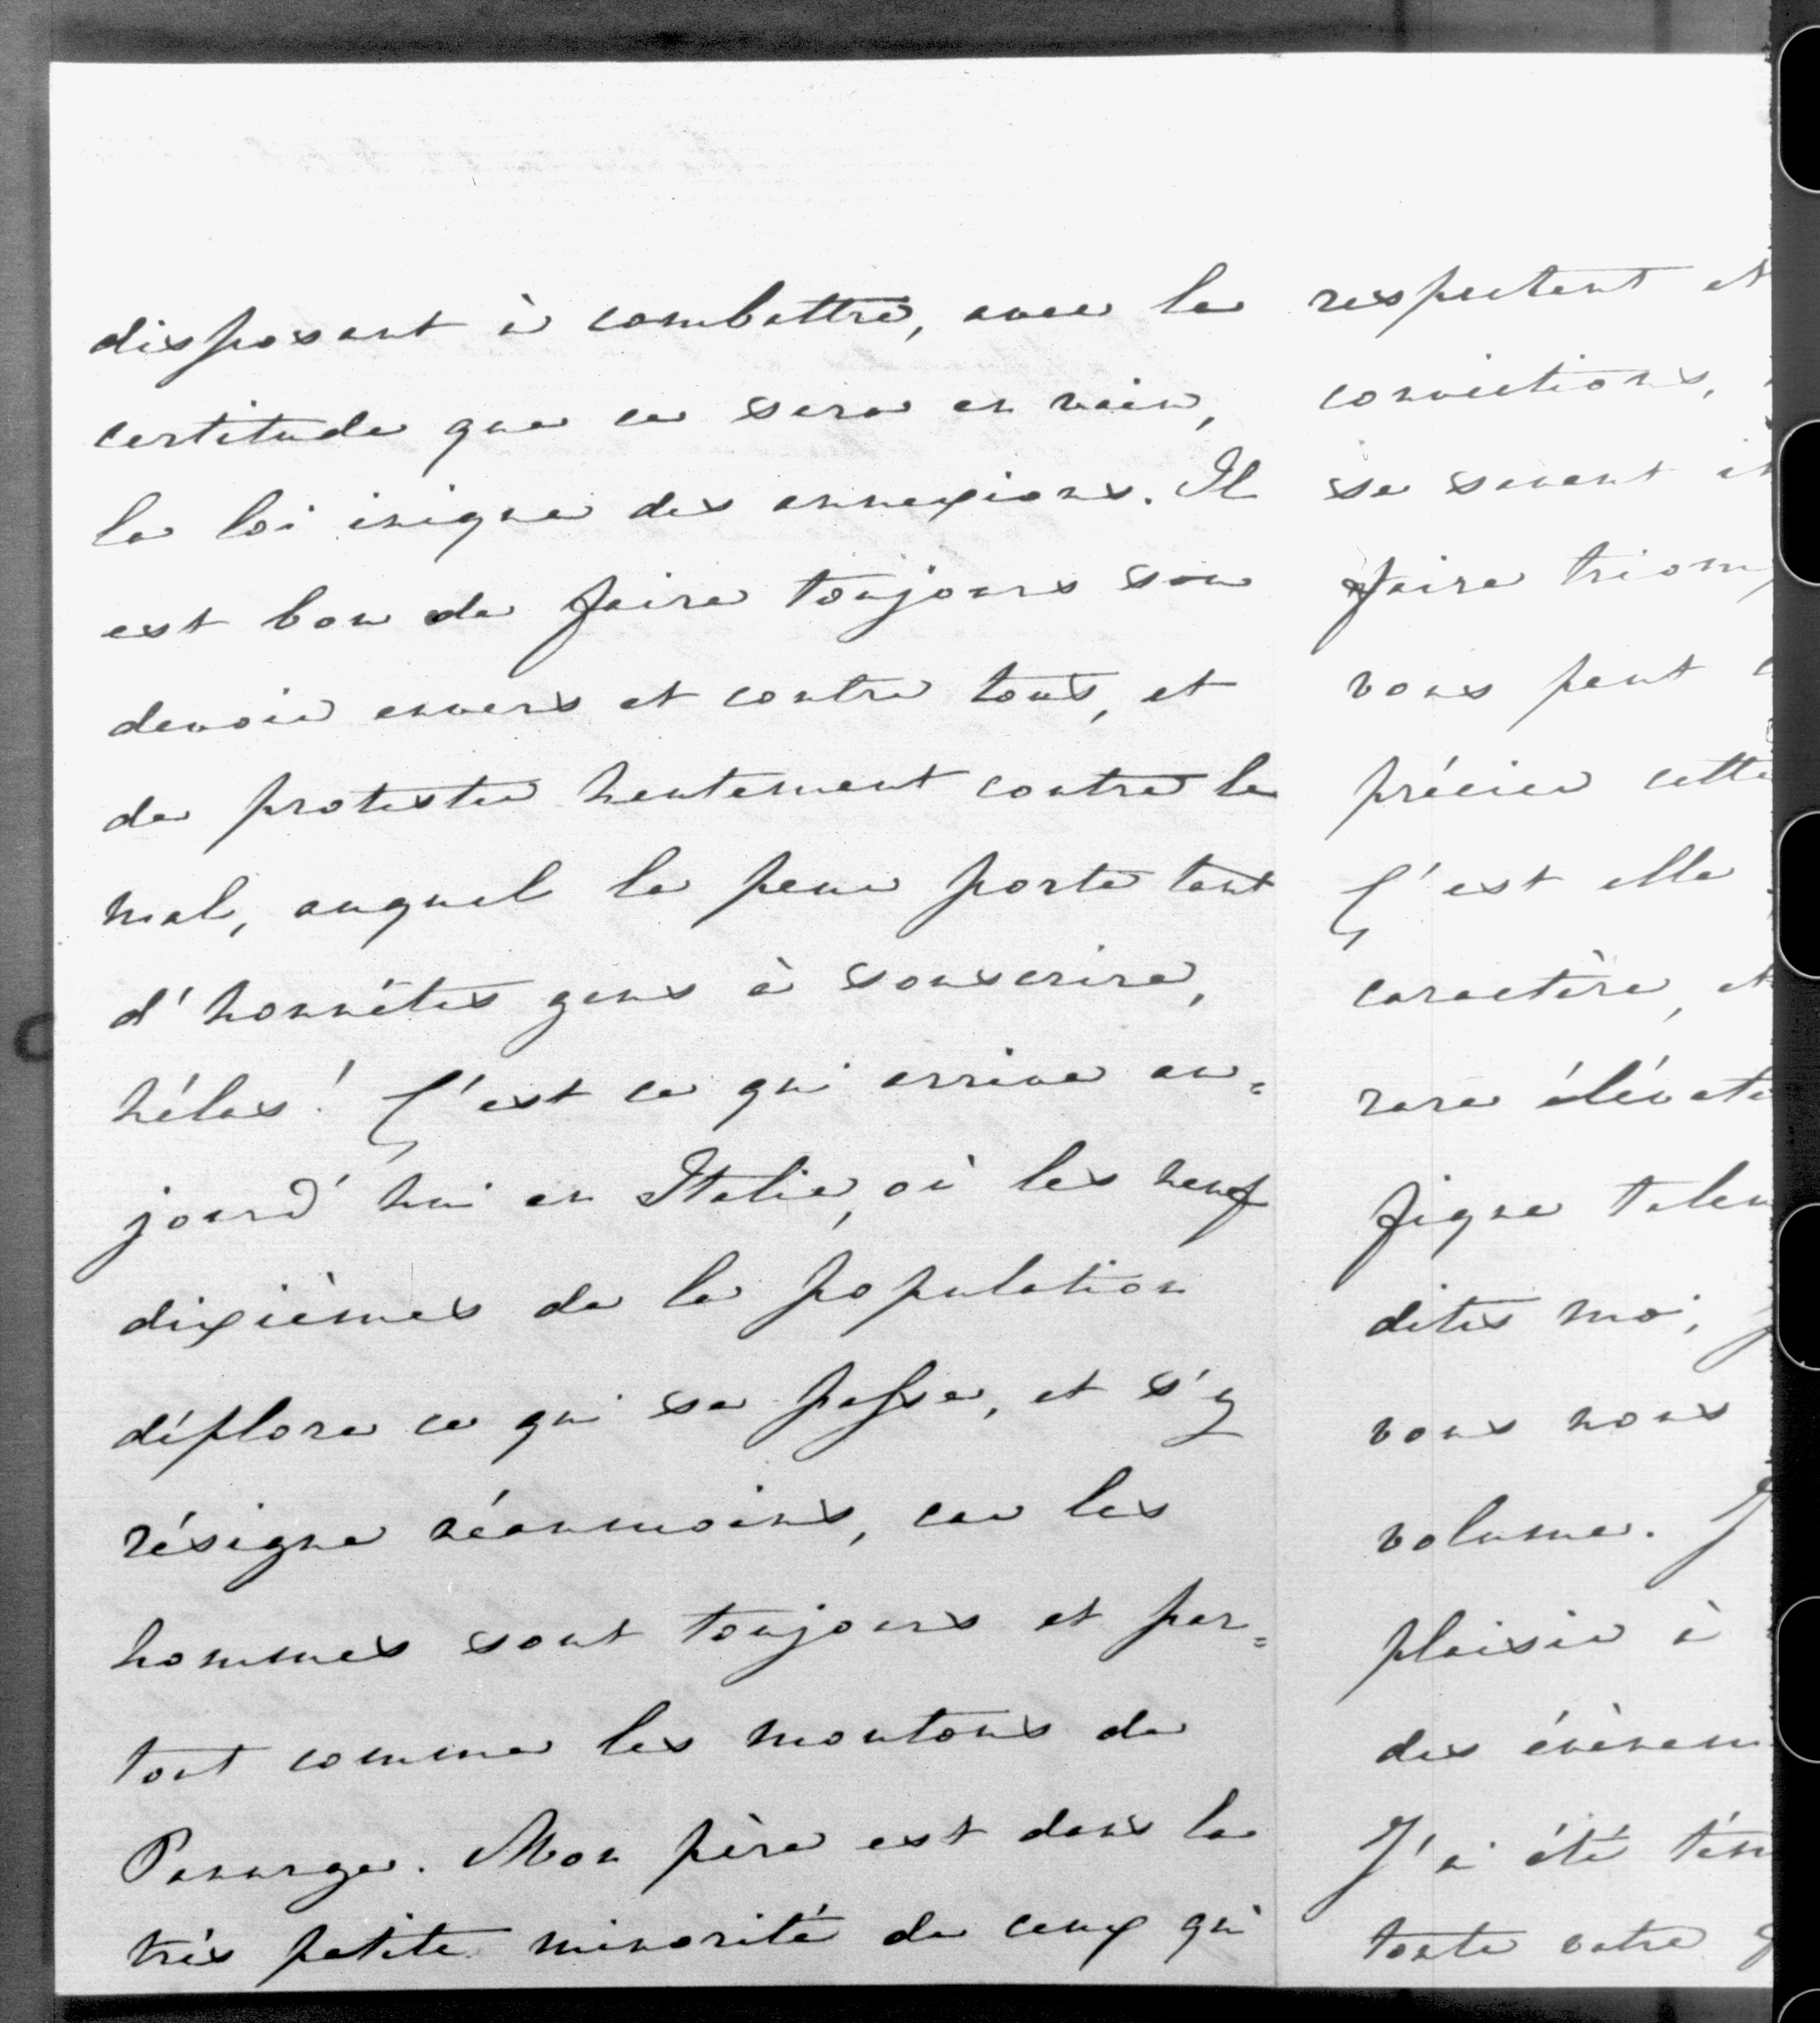 disposant à combattre, avec la
certitude que ce sera en vain,
la loi inique des annexions. Il
est bon de faire toujours son
devoir envers et contre tous, et
de protester hautement contre le
mal, auquel la peur porte tant
d'honnêtes gens à souscrire,
hélas! C'est ce qui arrive au=
jourd'hui en Italie, où les neuf
dixièmes de la population
déplore ce qui se passe, et s'y
résigne néanmoins, car les
hommes sont toujours et par=
tout comme les moutons de
Panurge. Mon père est dans la
très petite minorité de ceux qui
respectent et
convictions,
se savent
faire triom
vous peut
précier cette
C'est elle
caractère, et
rare élévati
fique talen
dites moi,
vous nous
volume. J
plaisir à
des évènem
J'ai été tém
toute votre